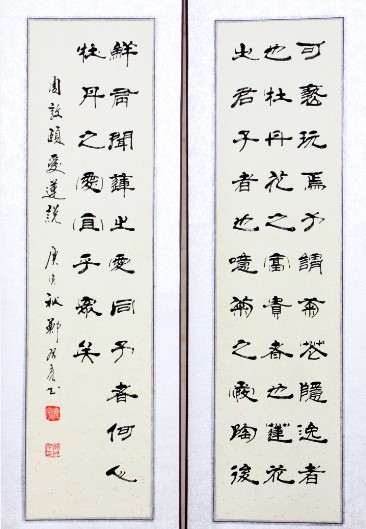 可褻玩焉予謂菊花隱逸者
也牡丹花之富貴者也蓮花
之君子者也噫菊之愛陶後
鮮有聞蓮之愛同予者何人
牡丹之愛宜乎眾矣
周敦頤愛蓮說 庚寅秋鄭書